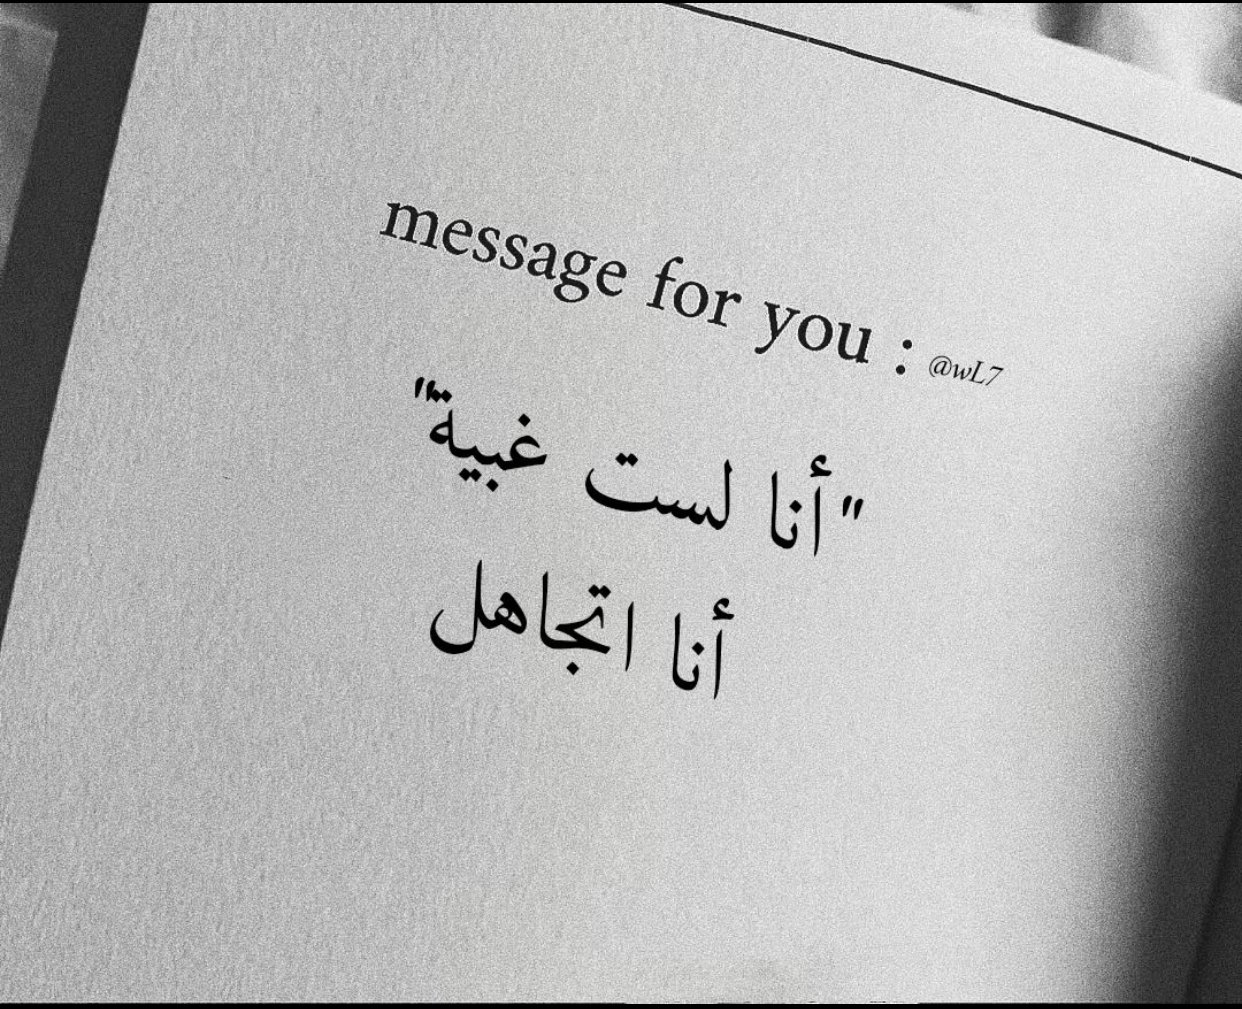 message for you : @wL7
"أنا لست غبية"
أنا اتجاهل